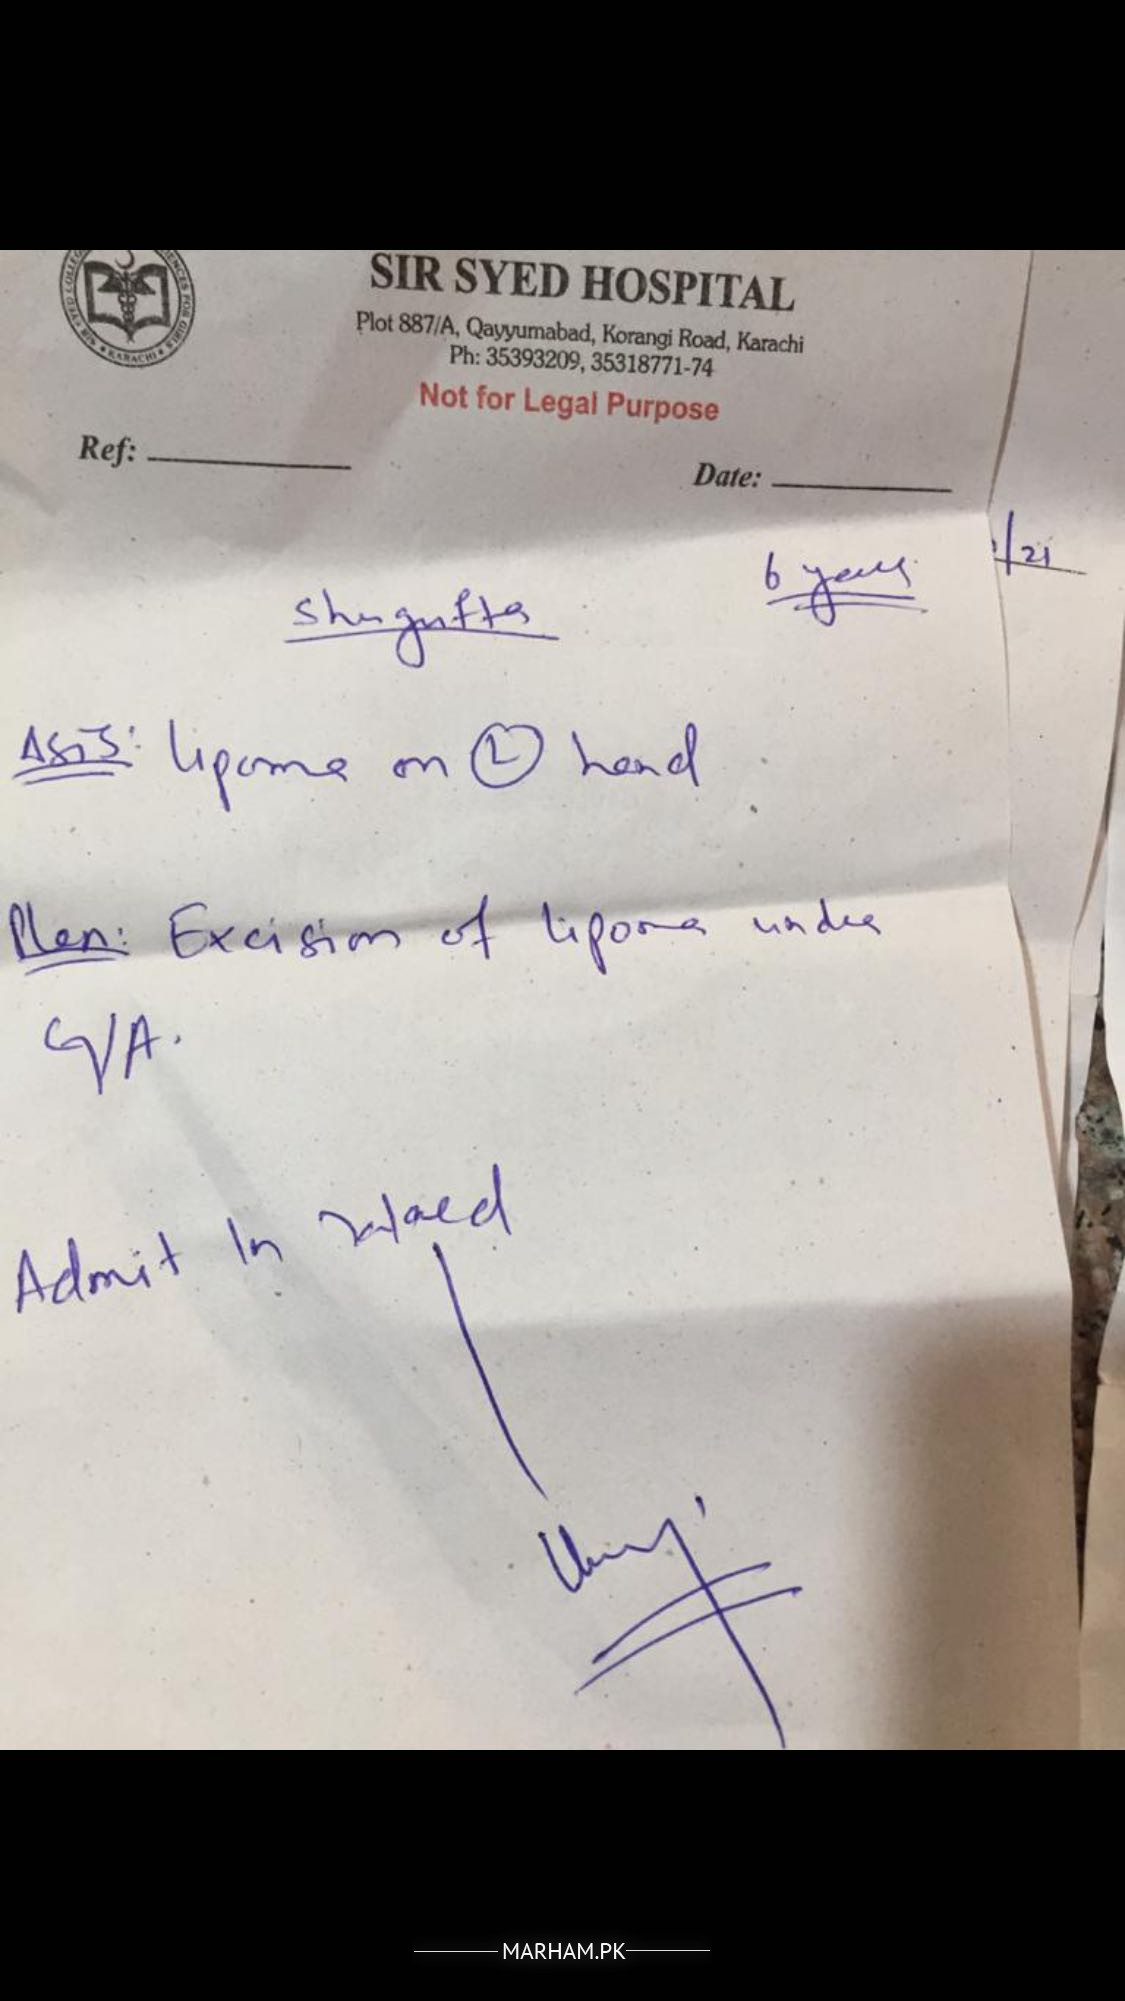 SIR SYED COLLEGE ENCES FOR GIRLS
★ KARACHI ★
SIR SYED HOSPITAL
Plot 887/A, Qayyumabad, Korangi Road, Karachi
Ph: 35393209, 35318771-74
Not for Legal Purpose
Ref:
Date:
/21
Shugufta 6 years
lipoma on (L) hand
Plan: Excision of lipoma under
G/A.
Admit In Ward
MARHAM.PK